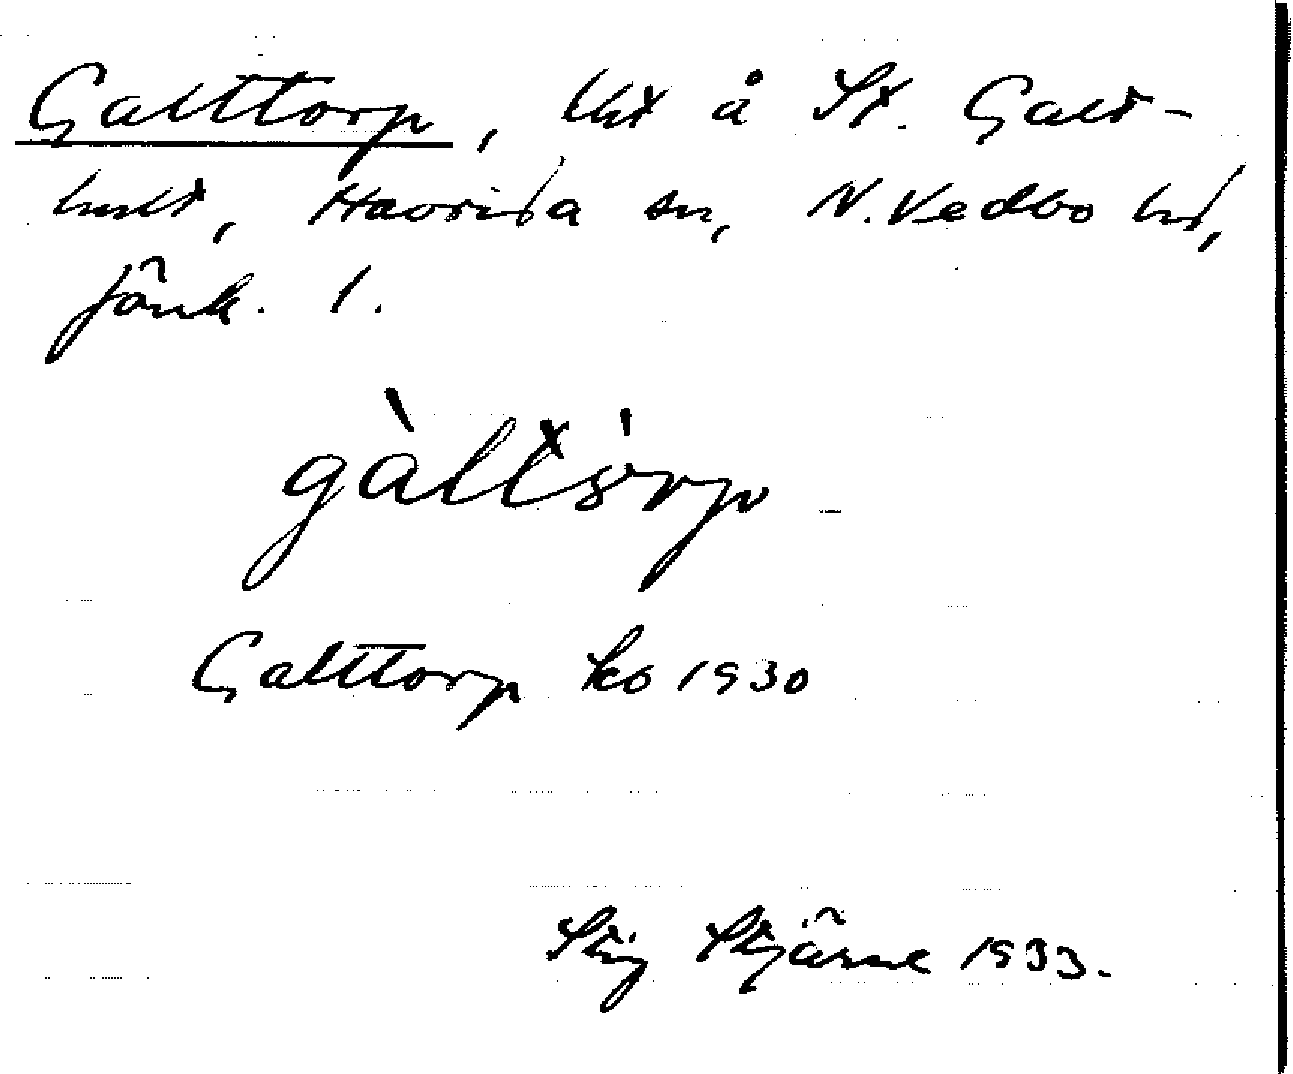 Galttorp, lht å St. Galt-
hult, Haurida sn, N. Vedbo hd,
Jönk. l.
gàltórp
Galttorp kb 1930
Stig Stjärne 1933.